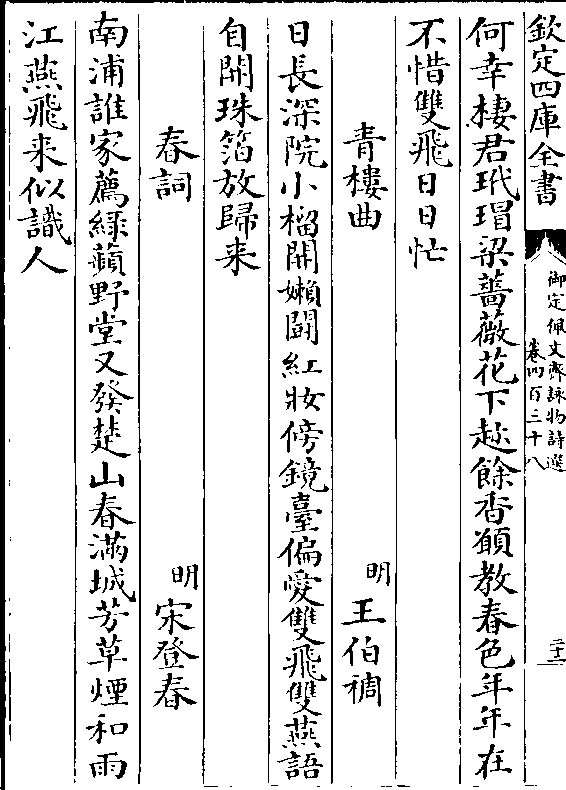 欽定四庫全書
御定佩文齋詠物詩選
卷四百三十八
二十二
何幸棲君玳瑁梁薔薇花下趂餘香願教春色年年在
不惜雙飛日日忙
青樓曲
明 王伯稠
日長深院小榴開嬾鬪紅妝傍鏡臺偏愛雙飛雙燕語
自開珠箔放歸来
春詞
明 宋登春
南浦誰家薦綠蘋野堂又發楚山春滿城芳草煙和雨
江燕飛来似識人